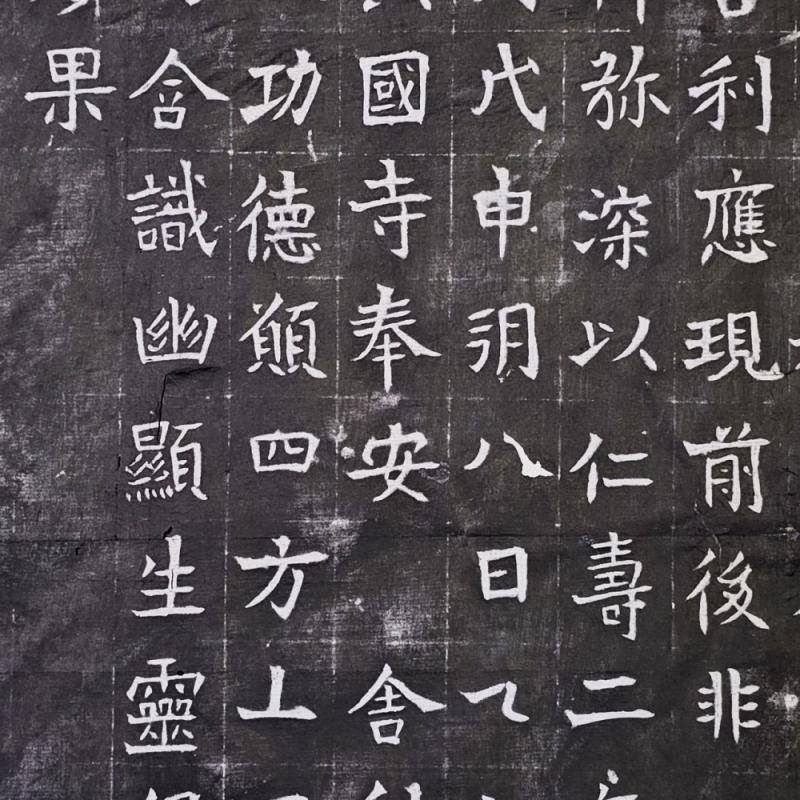 利應現前後非
弥深以仁壽二
戊申朔八日乙
國寺奉安舎
功德願四方上
含識幽顯生靈
果